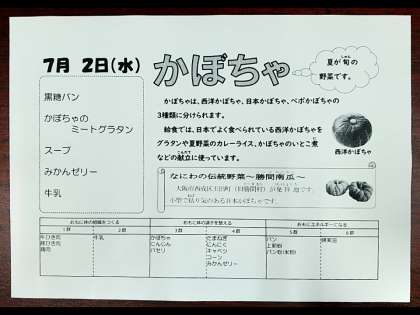 7月 2日(水)
かぼちゃ
夏が旬の
野菜です。
黒糖パン
かぼちゃの
ミートグラタン
スープ
みかんゼリー
牛乳
かぼちゃは、西洋かぼちゃ、日本かぼちゃ、ペポかぼちゃの
3種類に分けられます。
給食では、日本でよく食べられている西洋かぼちゃを
グラタンや夏野菜のカレーライス、かぼちゃのいとこ煮
などの献立に使っています。
西洋かぼちゃ
なにわの伝統野菜~勝間南瓜~
大阪市西成区玉出町(旧勝間村)が発祥地です。
小型で粘り気のある日本かぼちゃです。
おもに体の組織をつくる
おもに体の調子を整える
おもにエネルギーになる
1群 2群 3群 4群 5群 6群
牛ひき肉 牛乳 かぼちゃ たまねぎ パン 綿実油
豚ひき肉 にんじん にんにく 上新粉
鶏肉 パセリ キャベツ パン粉(米粉)
コーン
みかんゼリー